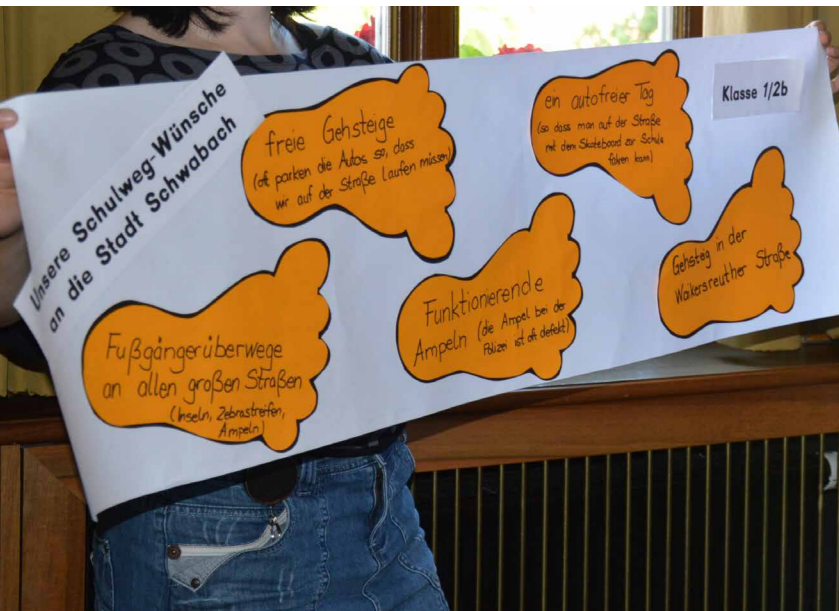 Unsere Schulweg-Wünsche
an die Stadt Schwabach
Klasse 1/2b
freie Gehsteige
(oft parken die Autos so, dass
wir auf der Straße laufen müssen)
ein autofreier Tag
(so dass man auf der Straße
mit dem Skateboard zur Schule
fahren kann)
Fußgängerüberwege
an allen großen Straßen
(Inseln, Zebrastreifen,
Ampeln)
Funktionierende
Ampeln (die Ampel bei der
Polizei ist oft defekt)
Gehsteig in der
Waikersreuther Straße